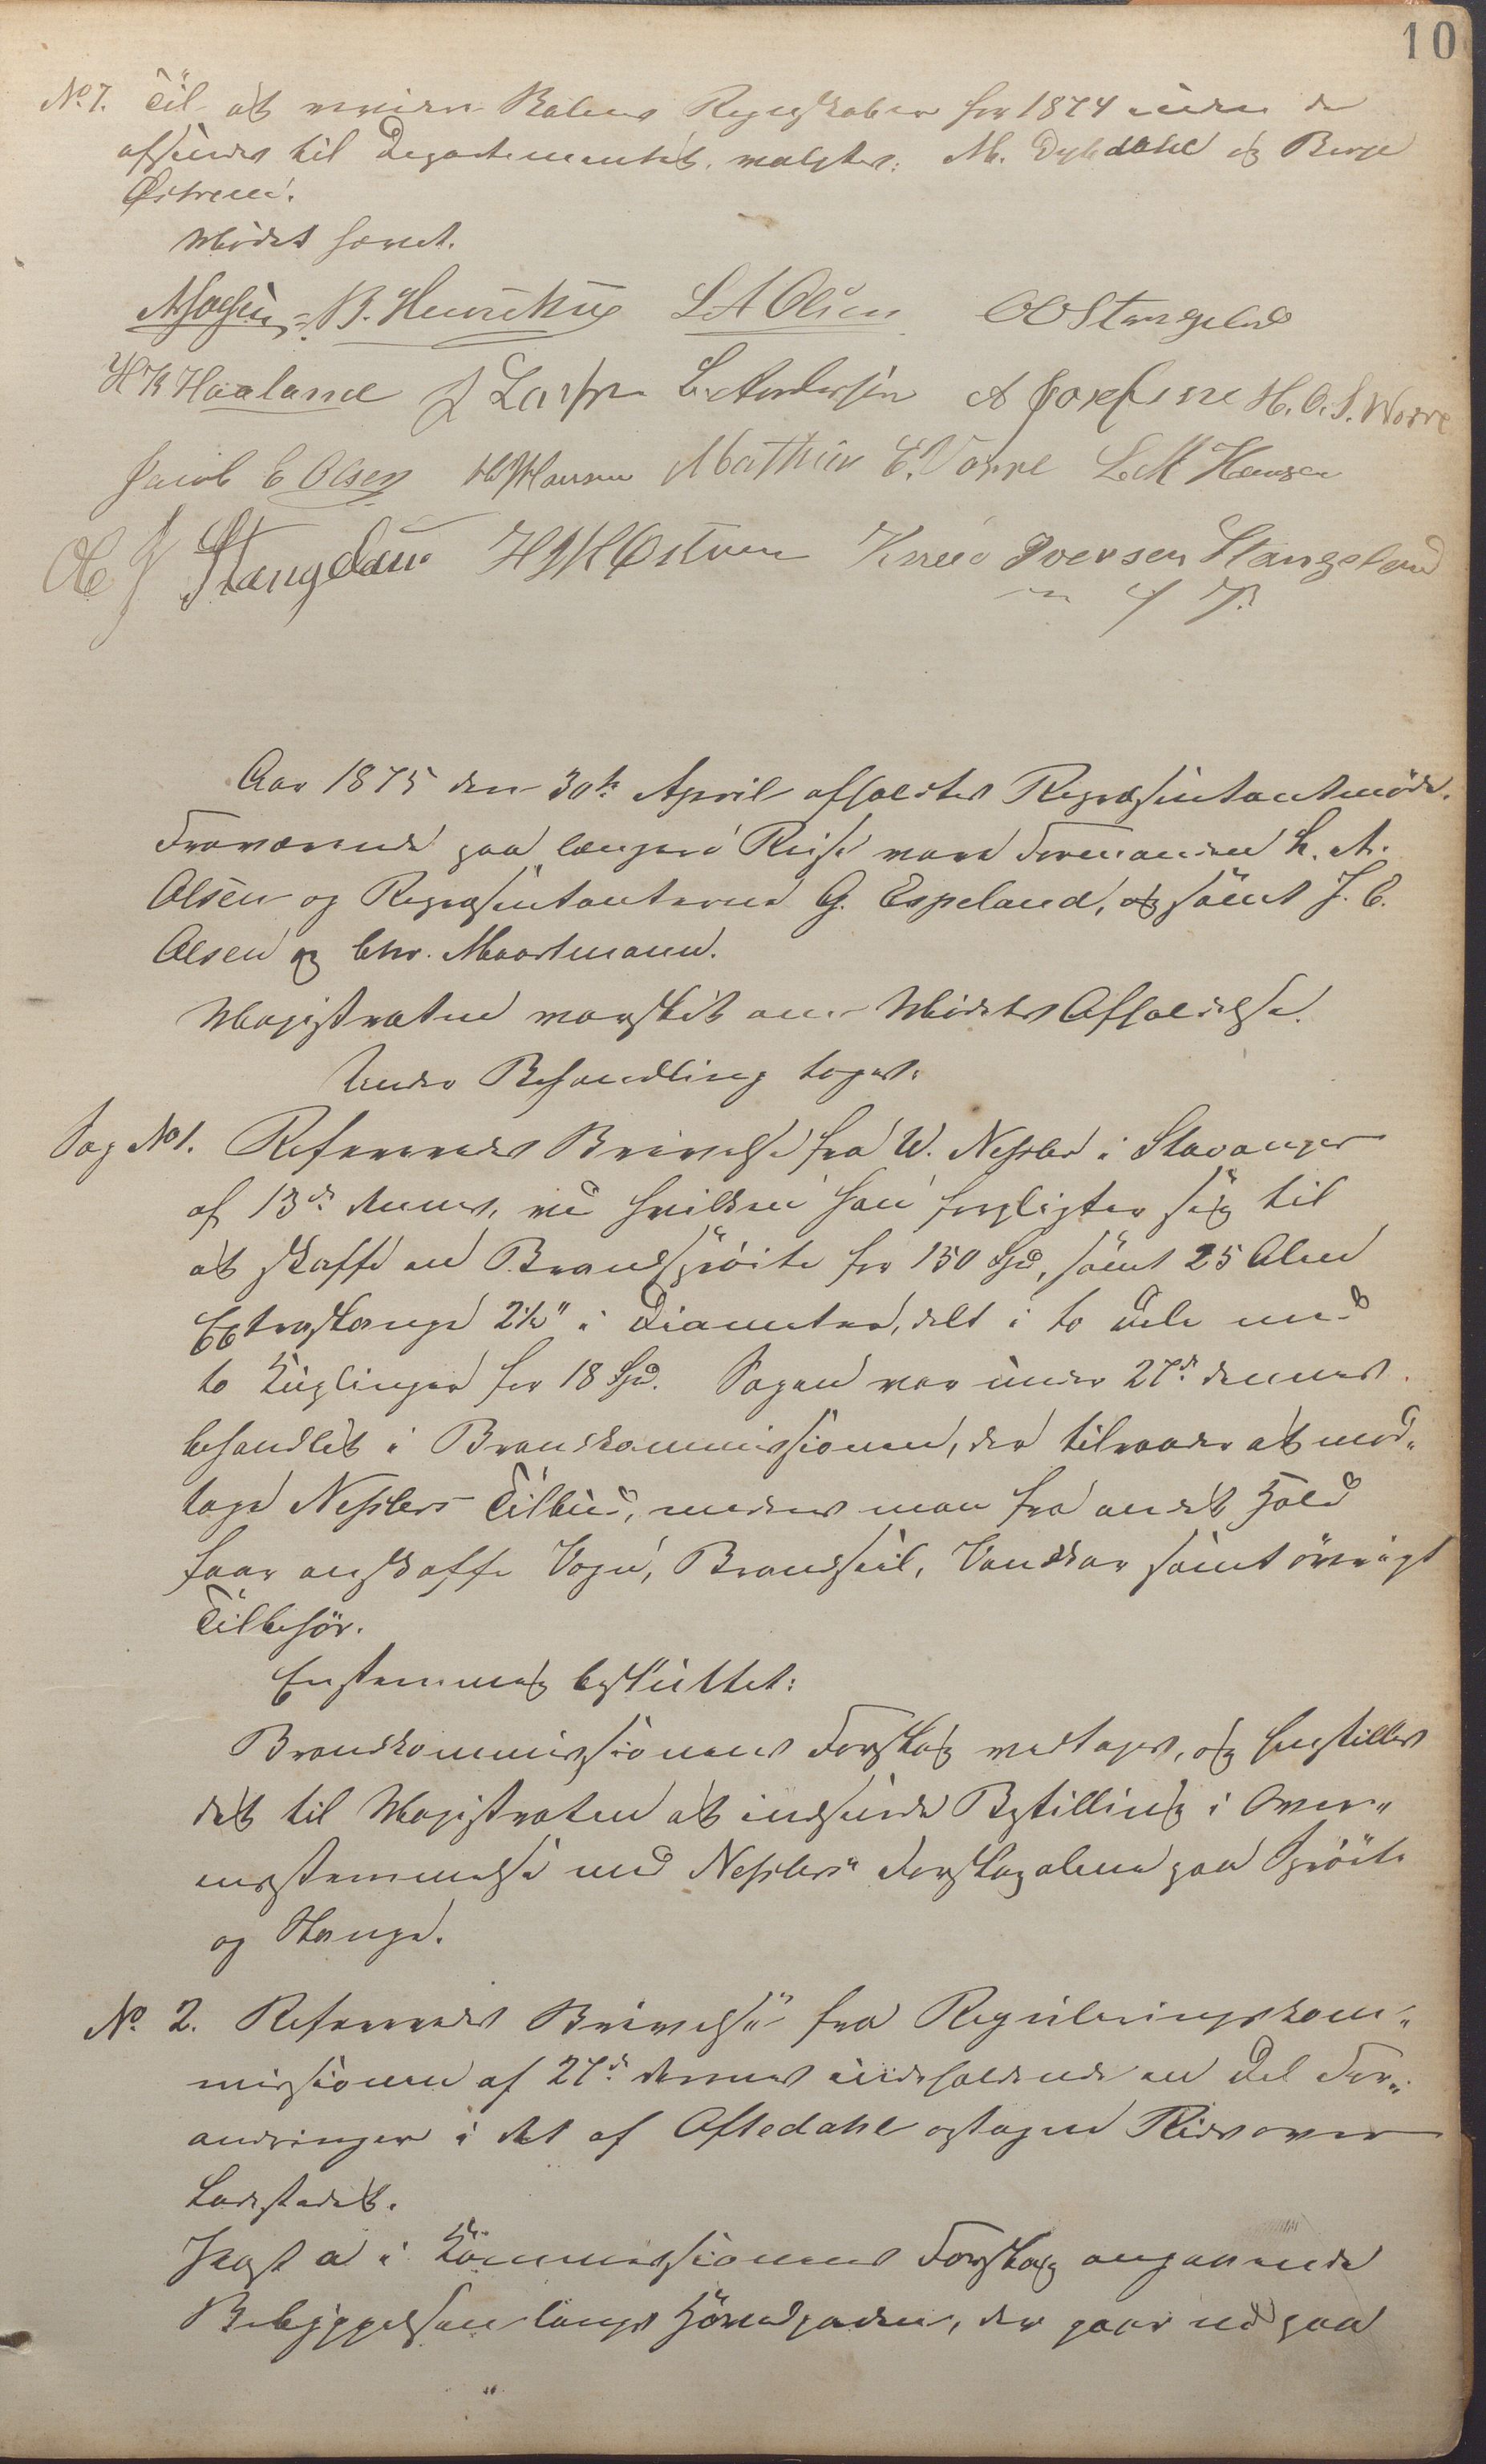 10
No 7. Til at revidere Byens Regnskaber for 1874 inden de
afsendes til Departementet valgtes: M. Dybdahl og Berge
Østrem.
Mødet hævet.
B. Henriksen L A Olsen O O Stangeland
H K Haaland J Larsen L. Andersen A Josefsene H. O. S. Vorre
Jacob E Olsen Hansen Matthias E. Vorre L. M Hansen
O J Stangeland H Østrem Knud Iversen Stangeland
m f P.
Aar 1875 den 30te April afholdtes Repræsentantmøde.
Fraværende paa længere Reise vare Formanden L. A.
Olsen og Repræsentanterne G. Espeland, og samt J. E.
Olsen og Chr. Maartmann.
Magistraten varslet om Mødets Afholdelse.
Under Behandling toges:
Sag No 1. Refereredes Skrivelse fra W. Nessler i Stavanger
af 13de dennes, ved hvilken han forpligter sig til
at skaffe en Brandsprøite for 150 Spd, samt 25 Alen
Extraslange 2½" i Diameter, delt i to Dele med
to Kuplinger for 18 Spd. Sagen var under 27de dennes
behandlet i Brandkommissionen, der tilraader at mod„
tage Nesslers Tilbud, medens man fra andet Hold
faar anskaffe Vogn, Brandseil, Vandkar samt øvrigt
Tilbehør.
Enstemmig besluttet:
Brandkommissionens Forslag vedtages, og henstilles
det til Magistraten at indsende Bestilling i Over„
ensstemmelse med Nesslers Forslag alene paa Sprøite
og Slange.
No. 2. Refereredes Skrivelse fra Reguleringskom„
missionen af 27de dennes indeholdende en Del For„
andringer i det af Aftedahl optagne Rids over
Ladestedet.
Post a i Kommissionens Forslag angaaende
Bebyggelsen langs Hovedgaden, der gaar ud paa